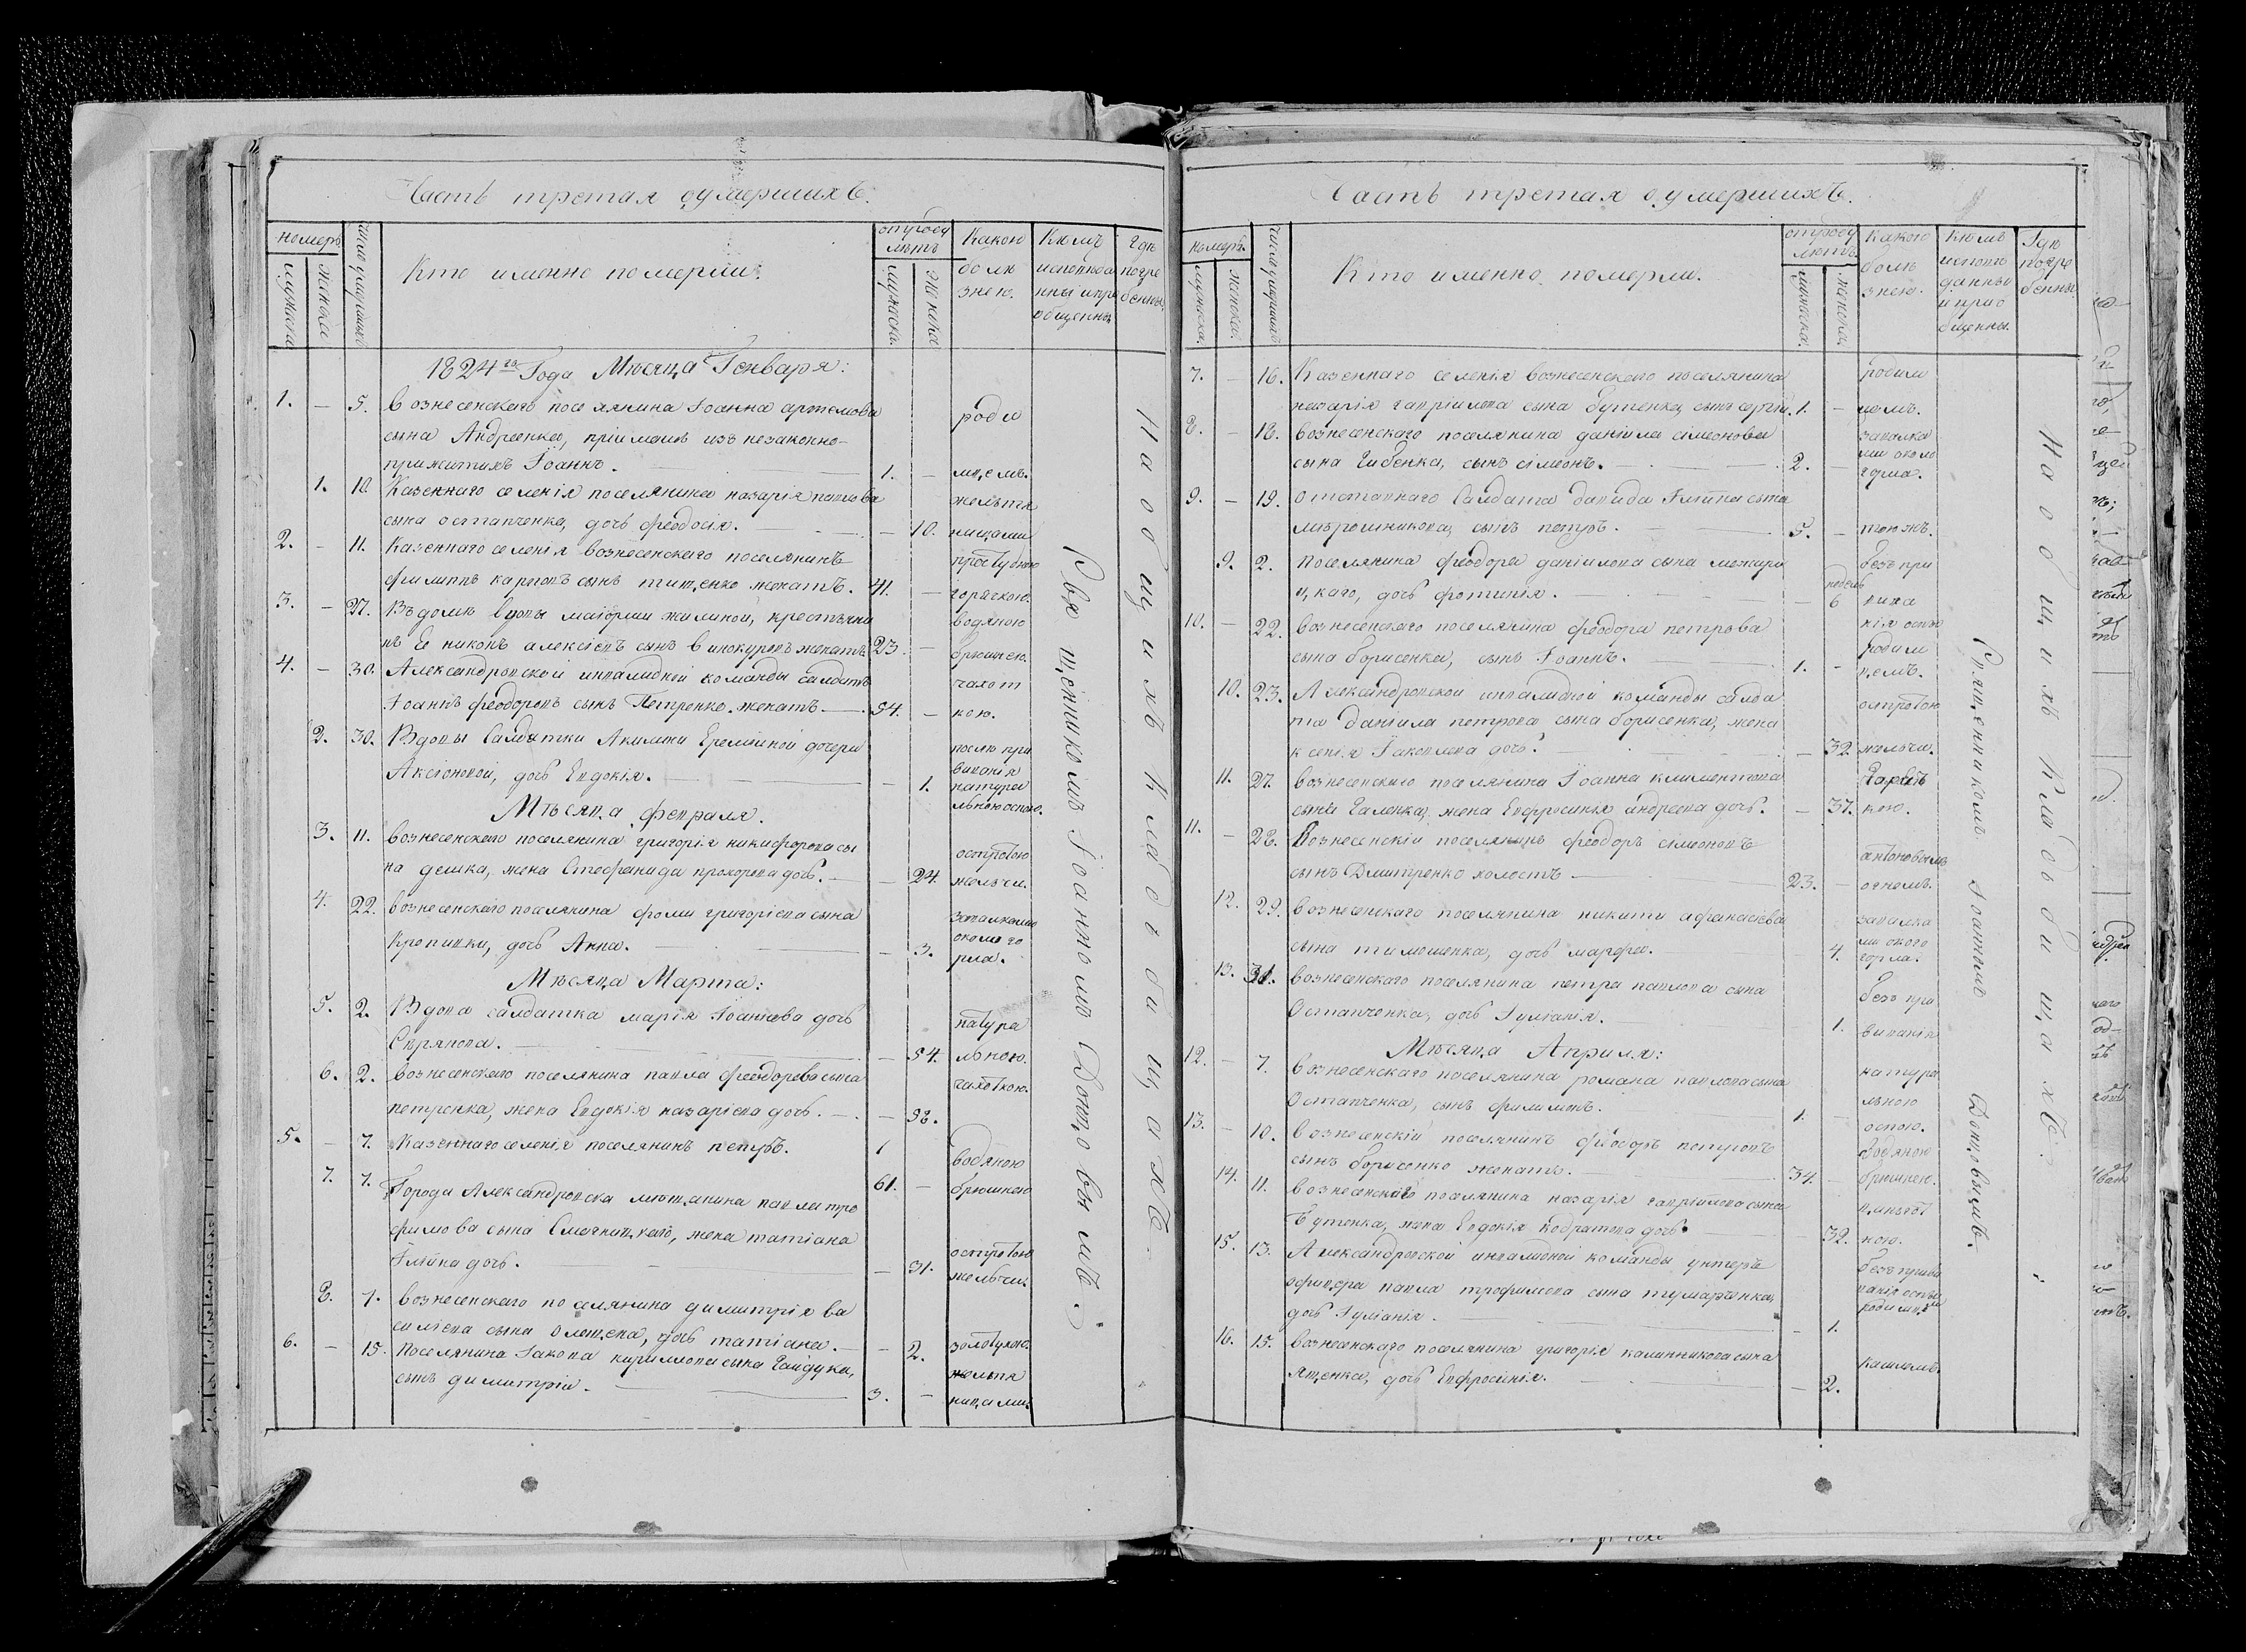 Часть третая оумершихъ.
номеръ
мужеска
женска
число умершихъ
Кто именно померли.
отъ роду лѣтъ
мужеска.
женска
Какою болѣзнею.
Кемъ исповѣданны и приобщенны
гдѣ погребенны.
1824го Года Мѣсяца Генваря:
1. — 5. вознесенскаго поселянина Іоанна артемова
сына Андреенка, пріимышъ изъ незаконно-
прижитыхъ Іоаннъ. 1. — родимцемъ.
1. 10. Казеннаго селенія поселянина назарія павлова
сына остапченка, дочь феодосія. — 10. желтяницами
2. — 11. Казеннаго селенія вознесенскаго поселянинъ
филиппъ карповъ сынъ тищенко женатъ. 41. — простудною горячкою.
3. — 27. Вѣдомѣ вдовы маіорши жилиной, крестьяни
нъ Ея никонъ алексіевъ сынъ винокуровъ женатъ. 23. — водяною брюшною.
4. — 30. Александровской инвалидной команды салдатъ
Іоаннъ феодоровъ сынъ Петренко. женатъ. 54. — чахоткою.
2. 30. Вдовы Салдатки Акилины Ереміиной дочери
Аксіоновой, дочь Евдокія. — 1. послѣ прививанія натуральною оспою.
Мѣсяца февраля.
3. 11. вознесенскаго поселянина григорія никифорова сы
на дешка, жена Стефанида прохорова дочь. — 24. острою желчью.
4. 22. вознесенскаго поселянина фомы григоріева сына
Кропивки, дочь Анна. — 3. запалками около горла.
Мѣсяца Марта:
5. 2. Вдова салдатка марія Іоаннова дочь
Сѣрякова. — 54. натуральною.
6. 2. вознесенскаго поселянина павла феодорова сына
петренка, жена Евдокія назаріева дочь. — 58. чахоткою.
5. — 7. Казеннаго селенія поселянинъ петръ. 61. — водяною брюшною
7. 7. Города Александровска мѣщанина павла тро
фимова сына Смачницкаго, жена татіана
Іліина дочь. — 31. острою желчью.
8. 7. вознесенскаго поселянина димитрія ва
силіева сына олещека, дочь татіана. — 2. золотухою.
6. — 15. Поселянина Іакова кирилова сына Гайдука,
сынъ димитрій. 3. — желтяницами.
Священникомъ Іоанномъ Донцовымъ.
На общихъ кладбищахъ
Часть третая оумершихъ.
номеръ.
мужеска.
женска.
число умершихъ
Кто именно померли.
отъ роду лѣтъ.
мужеска.
женска.
Какою болѣзнею.
Кемъ исповѣданны и приобщенны.
Гдѣ погребенны
7. — 16. Казеннаго селенія вознесенскаго поселянина
назарія гавріилова сына бутенка, сынъ сергій. 1. — родимцемъ.
8. — 18. вознесенскаго поселянина даніила сімеонова
сына Гибенка, сынъ сімеонъ. 2. — запалками около горла.
9. — 19. Отставнаго Салдата давида Іліина сына
мирошникова, сынъ петръ. 5. — тоюжъ.
9. 2. Поселянина феодора даніилова сына мокри
цкаго, дочь фотинія. — недель 6 безъ прививанія оспы
10. — 22. вознесенскаго поселянина феодора петрова
сына борисенка, сынъ Іоаннъ. 1. — родимцемъ.
10. 23. Александровской инвалидной команды салда
та Даніила петрова сына борисенка, жена
ксенія Іаковлева дочь. — 32. острою желчью.
11. 27. вознесенскаго поселянина Іоанна климентова
сына Галенка, жена Евфросинія андреева дочь. — 37. Горячкою.
11. — 28. Вознесенскій поселянинъ феодоръ сімеоновъ
сынъ Дмитренко холостъ. 23. — антоновымъ огнемъ.
12. 29. вознесенскаго поселянина никиты афанасіева
сына тимошенка, дочь марфа. 4. запалками около горла.
13. 31. вознесенскаго поселянина петра павлова сына
Остапченка, дочь Іуліанія. 1. безъ прививанія
Мѣсяца Априля:
12. — 7. вознесенскаго поселянина романа павлова сына
Остапченка, сынъ филимонъ. 1. — натуральною оспою.
13. — 10. вознесенскій поселянинъ феодоръ петровъ
сынъ борисенко женатъ. 34. — водяною брюшною.
14. 11. вознесенскаго поселянина назарія гавріилова сына
Бутенка, жена Евдокія кодратова дочь. 32. цынготною.
15. 13. Александровской инвалидной команды унтеръ
офицера павла трофимова сына тумаренка,
дочь Іуліанія. — 1. безъ прививанія оспы родимцемъ
16. 15. вознесенскаго поселянина григорія калинникова сына
Яценка, дочь Евфросинія. — 2. кашлемъ.
Священникомъ Іоанномъ Донцовымъ.
На общихъ кладбищахъ.